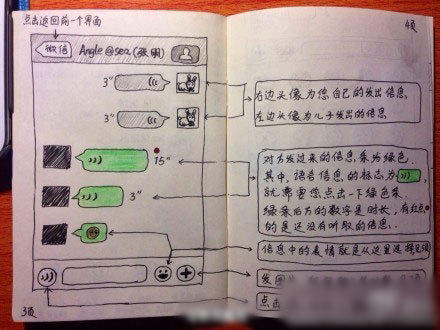 点击返回前一个界面
微信
Angle@sea(张明)
3"
3"
15"
3"
3页
4页
右边头像为您自己的发出信息
左边头像为儿子发出的信息
对方发过来的信息条为绿色.
其中,语音信息的标志为
就需要您点击一下绿色条.
绿条后方的数字是时长,有红点
的是还没有听取的信息.
信息中的表情就是从这里选择
发图
点击